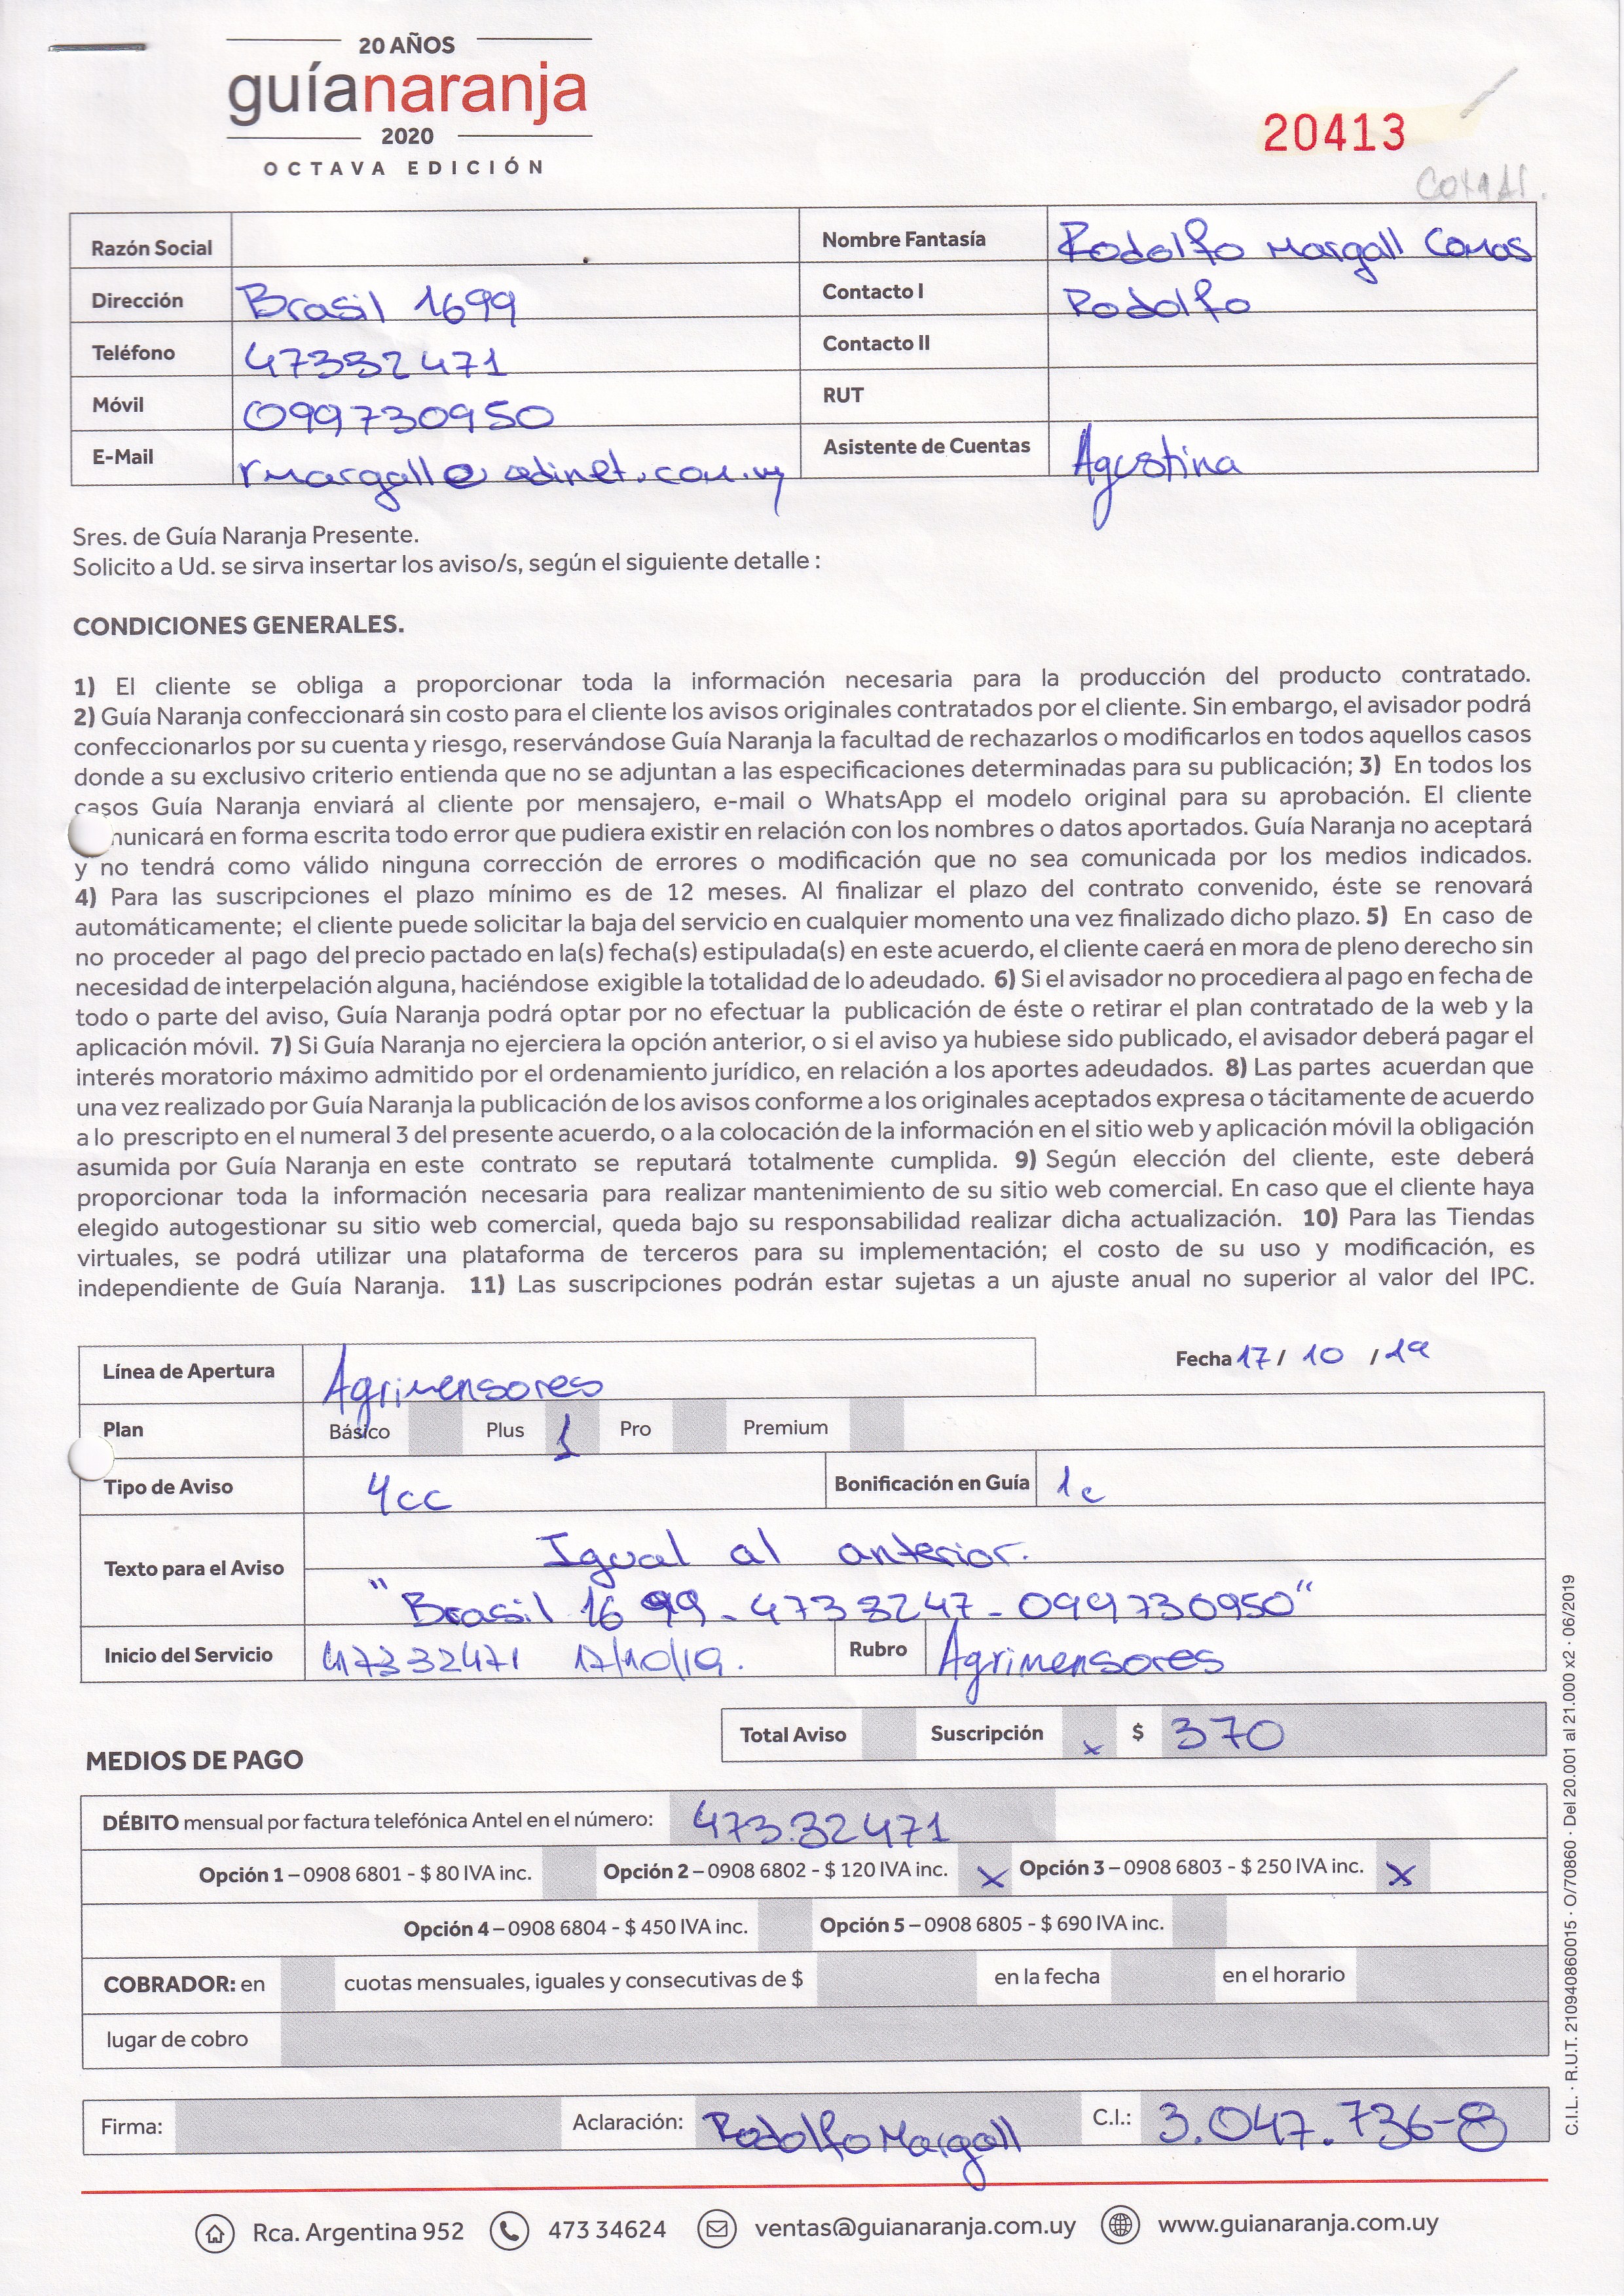 20 AÑOS
guíanaranja
2020
OCTAVA EDICIÓN
20413
Razón Social
Nombre Fantasía Rodolfo Margall Comas
Dirección Brasil 1699
Contacto I Rodolfo
Teléfono 47332471
Contacto II
Móvil 099730950
RUT
E-Mail rmargall@adinet.com.uy
Asistente de Cuentas Agostina
Sres. de Guía Naranja Presente.
Solicito a Ud. se sirva insertar los aviso/s, según el siguiente detalle :
CONDICIONES GENERALES.
1) El cliente se obliga a proporcionar toda la información necesaria para la producción del producto contratado.
2) Guía Naranja confeccionará sin costo para el cliente los avisos originales contratados por el cliente. Sin embargo, el avisador podrá
confeccionarlos por su cuenta y riesgo, reservándose Guía Naranja la facultad de rechazarlos o modificarlos en todos aquellos casos
donde a su exclusivo criterio entienda que no se adjuntan a las especificaciones determinadas para su publicación; 3) En todos los
casos Guía Naranja enviará al cliente por mensajero, e-mail o WhatsApp el modelo original para su aprobación. El cliente
municará en forma escrita todo error que pudiera existir en relación con los nombres o datos aportados. Guía Naranja no aceptará
y no tendrá como válido ninguna corrección de errores o modificación que no sea comunicada por los medios indicados.
4) Para las suscripciones el plazo mínimo es de 12 meses. Al finalizar el plazo del contrato convenido, éste se renovará
automáticamente; el cliente puede solicitar la baja del servicio en cualquier momento una vez finalizado dicho plazo. 5) En caso de
no proceder al pago del precio pactado en la(s) fecha(s) estipulada(s) en este acuerdo, el cliente caerá en mora de pleno derecho sin
necesidad de interpelación alguna, haciéndose exigible la totalidad de lo adeudado. 6) Si el avisador no procediera al pago en fecha de
todo o parte del aviso, Guía Naranja podrá optar por no efectuar la publicación de éste o retirar el plan contratado de la web y la
aplicación móvil. 7) Si Guía Naranja no ejerciera la opción anterior, o si el aviso ya hubiese sido publicado, el avisador deberá pagar el
interés moratorio máximo admitido por el ordenamiento jurídico, en relación a los aportes adeudados. 8) Las partes acuerdan que
una vez realizado por Guía Naranja la publicación de los avisos conforme a los originales aceptados expresa o tácitamente de acuerdo
a lo prescripto en el numeral 3 del presente acuerdo, o a la colocación de la información en el sitio web y aplicación móvil la obligación
asumida por Guía Naranja en este contrato se reputará totalmente cumplida. 9) Según elección del cliente, este deberá
proporcionar toda la información necesaria para realizar mantenimiento de su sitio web comercial. En caso que el cliente haya
elegido autogestionar su sitio web comercial, queda bajo su responsabilidad realizar dicha actualización. 10) Para las Tiendas
virtuales, se podrá utilizar una plataforma de terceros para su implementación; el costo de su uso y modificación, es
independiente de Guía Naranja. 11) Las suscripciones podrán estar sujetas a un ajuste anual no superior al valor del IPC.
Línea de Apertura Agrimensores
Fecha 17 / 10 / 19
Plan Básico Plus 1 Pro Premium
Tipo de Aviso 4cc Bonificación en Guía 1c
Texto para el Aviso Igual al anterior.
"Brasil 1699 - 4733247 - 099730950"
Inicio del Servicio 47332471 17/10/19. Rubro Agrimensores
Total Aviso Suscripción x $ 370
MEDIOS DE PAGO
DÉBITO mensual por factura telefónica Antel en el número: 473.32471
Opción 1 – 0908 6801 - $ 80 IVA inc. Opción 2 – 0908 6802 - $ 120 IVA inc. x Opción 3 – 0908 6803 - $ 250 IVA inc. x
Opción 4 – 0908 6804 - $ 450 IVA inc. Opción 5 – 0908 6805 - $ 690 IVA inc.
COBRADOR: en cuotas mensuales, iguales y consecutivas de $ en la fecha en el horario
lugar de cobro
Firma: Aclaración: Rodolfo Margall C.I.: 3.047.736-8
Rca. Argentina 952 473 34624 ventas@guianaranja.com.uy www.guianaranja.com.uy
C.I.L. · R.U.T. 210940860015 · O/70860 · Del 20.001 al 21.000 x2 · 06/2019